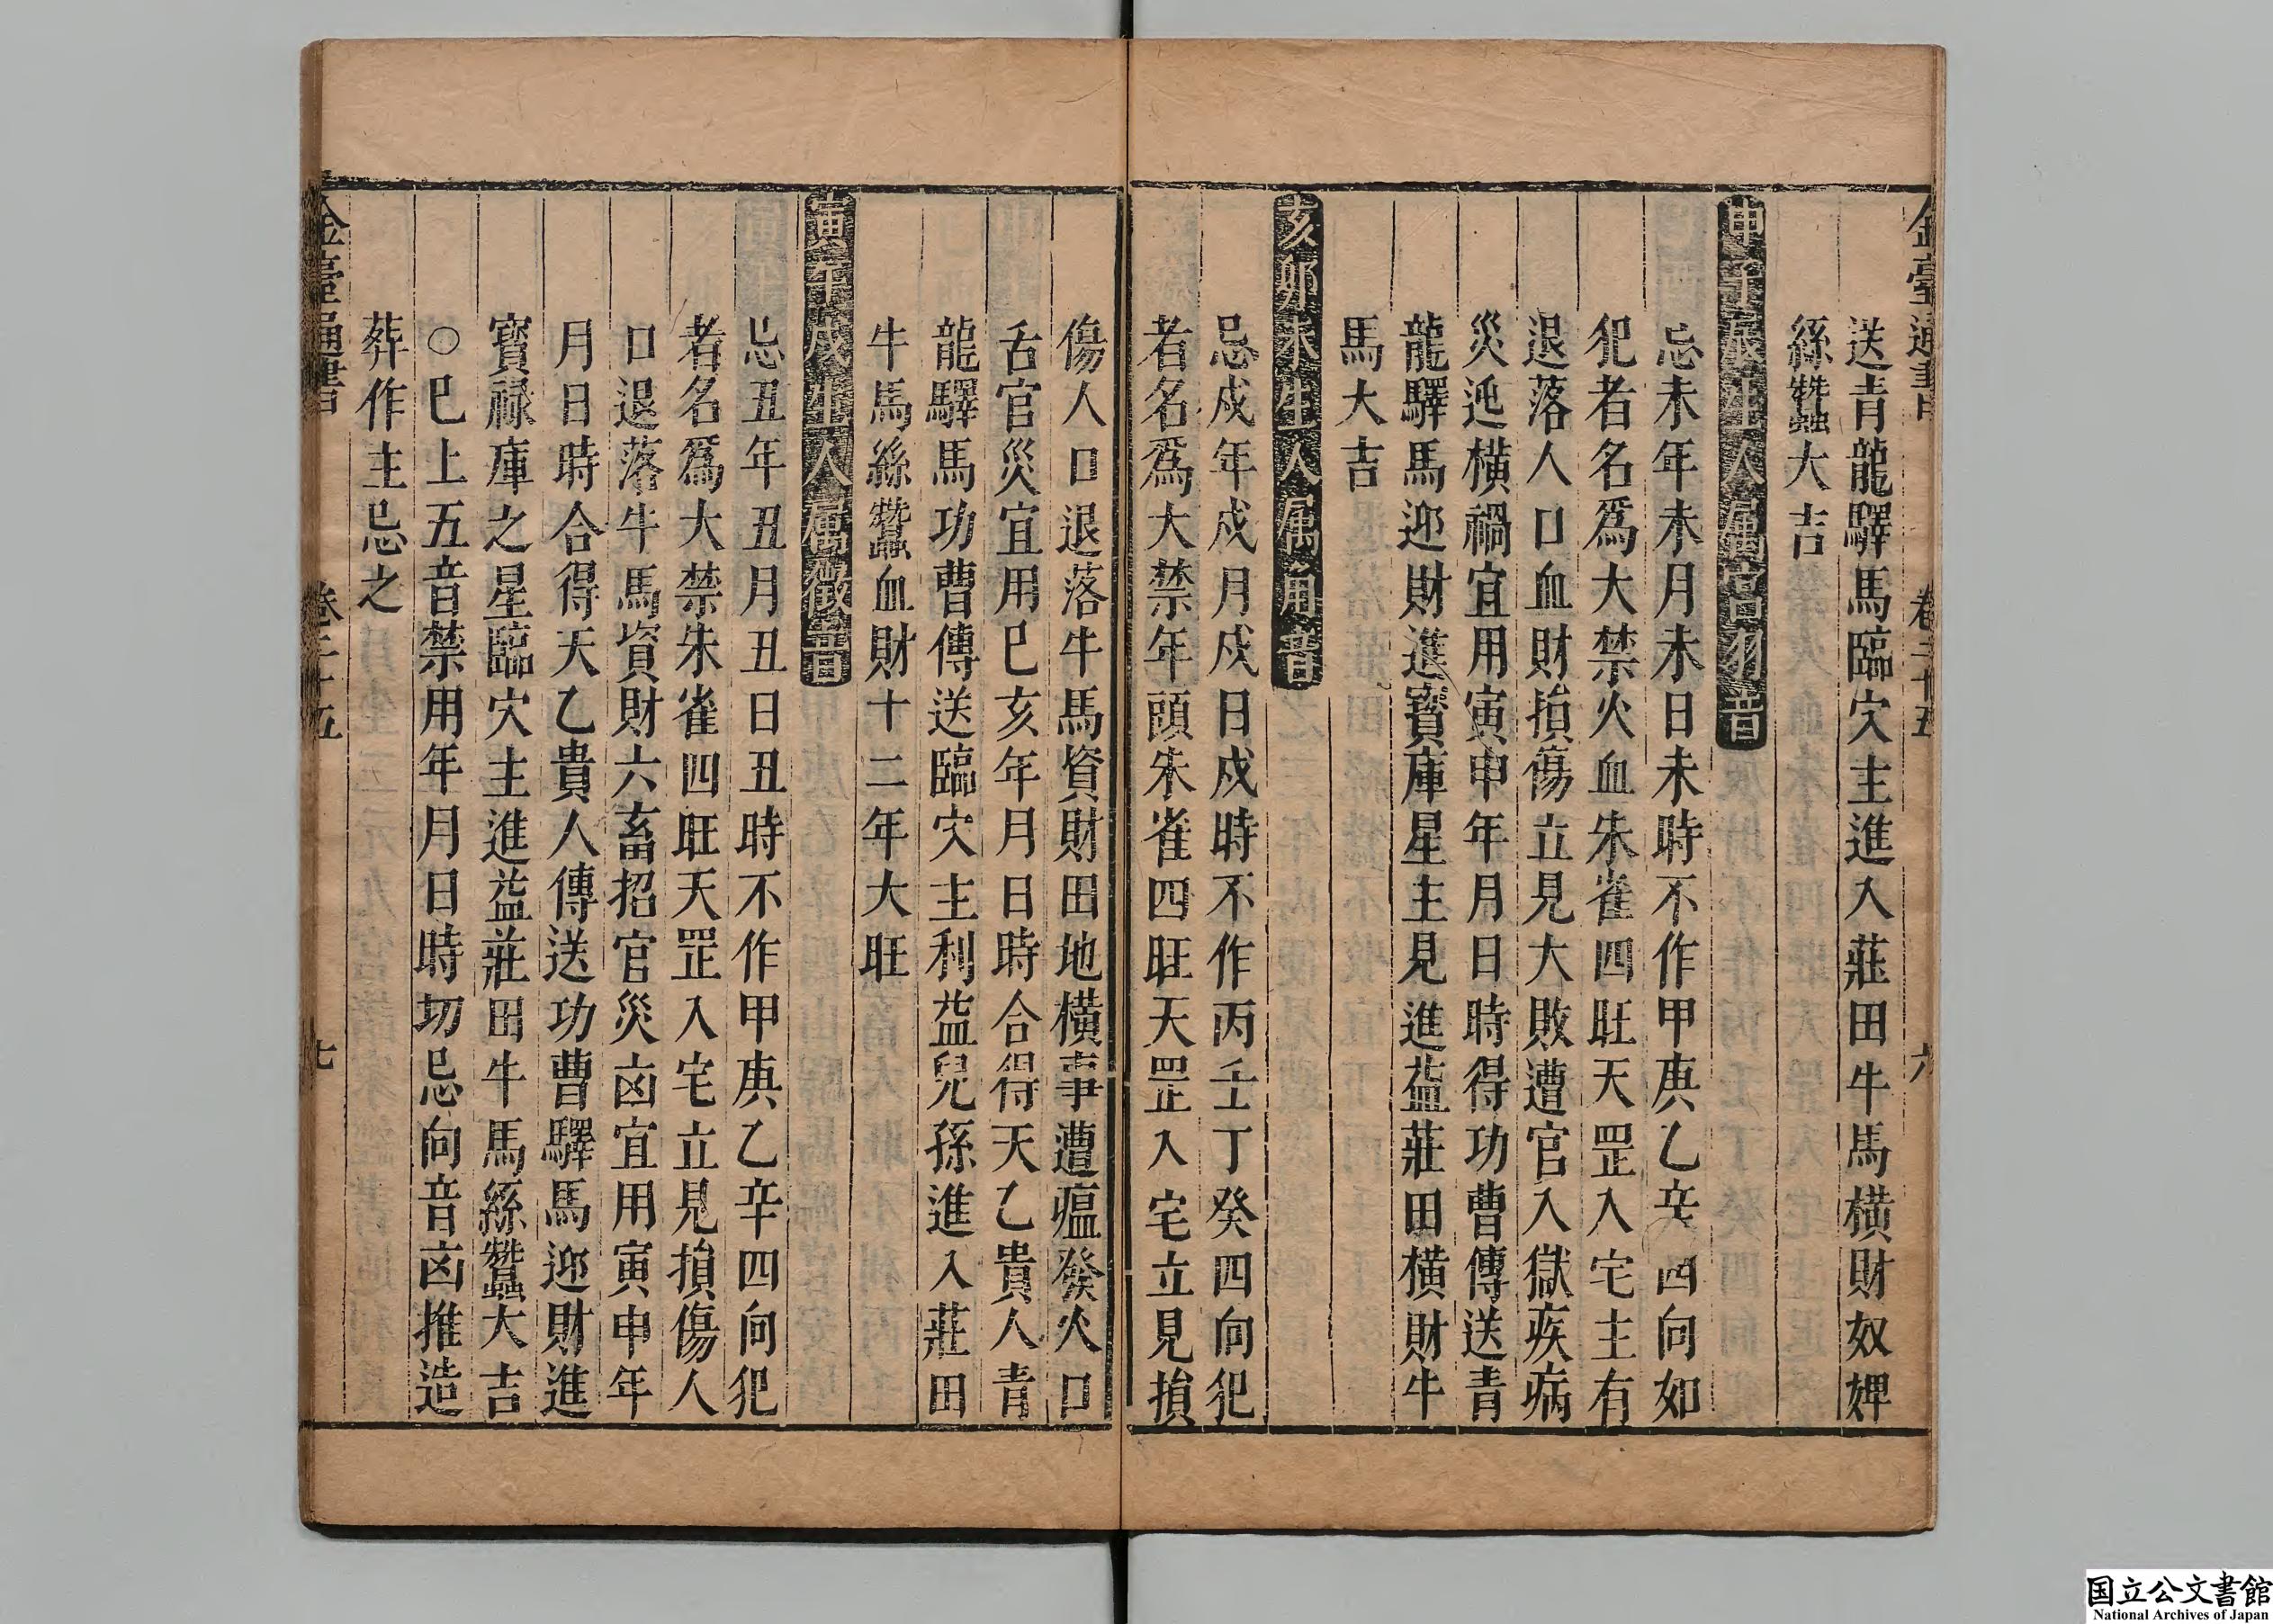 送青龍驛馬臨穴主進入莊田牛馬橫財奴婢
絲蠶大吉
申子辰生人属宫羽音
忌未年未月未日未時不作甲庚乙辛四向如
犯者名爲大禁火血朱雀四旺天罡入宅主有
退落人口血財損傷立見大敗遭官入獄疾病
災迍橫禍宜用寅申年月日時得功曹傳送青
龍驛馬迎財進寶庫星主見進益莊田橫財牛
馬大吉
亥卯未生人属角音
忌戍年戍月戍日戍時不作丙壬丁癸四向犯
者名爲大禁年頭朱雀四旺天罡入宅立見損
傷人口退落牛馬資財田地橫事遭瘟發火口
舌官災宜用巳亥年月日時合得天乙貴人青
龍驛馬功曹傳送臨穴主利益兒孫進入莊田
牛馬絲蠶血財十二年大旺
寅午戍生人属徵音
忌丑年丑月丑日丑時不作甲庚乙辛四向犯
者名爲大禁朱雀四旺天罡入宅立見損傷人
口退落牛馬資財六畜招官災凶宜用寅申年
月日時合得天乙貴人傳送功曹驛馬迎財進
寶祿庫之星臨穴主進益莊田牛馬絲蠶大吉
○巳上五音禁用年月日時切忌向音凶推造
葬作主忌之
金臺通書 卷三十五 六
金臺通書 卷三十五 七
国立公文書館
National Archives of Japan